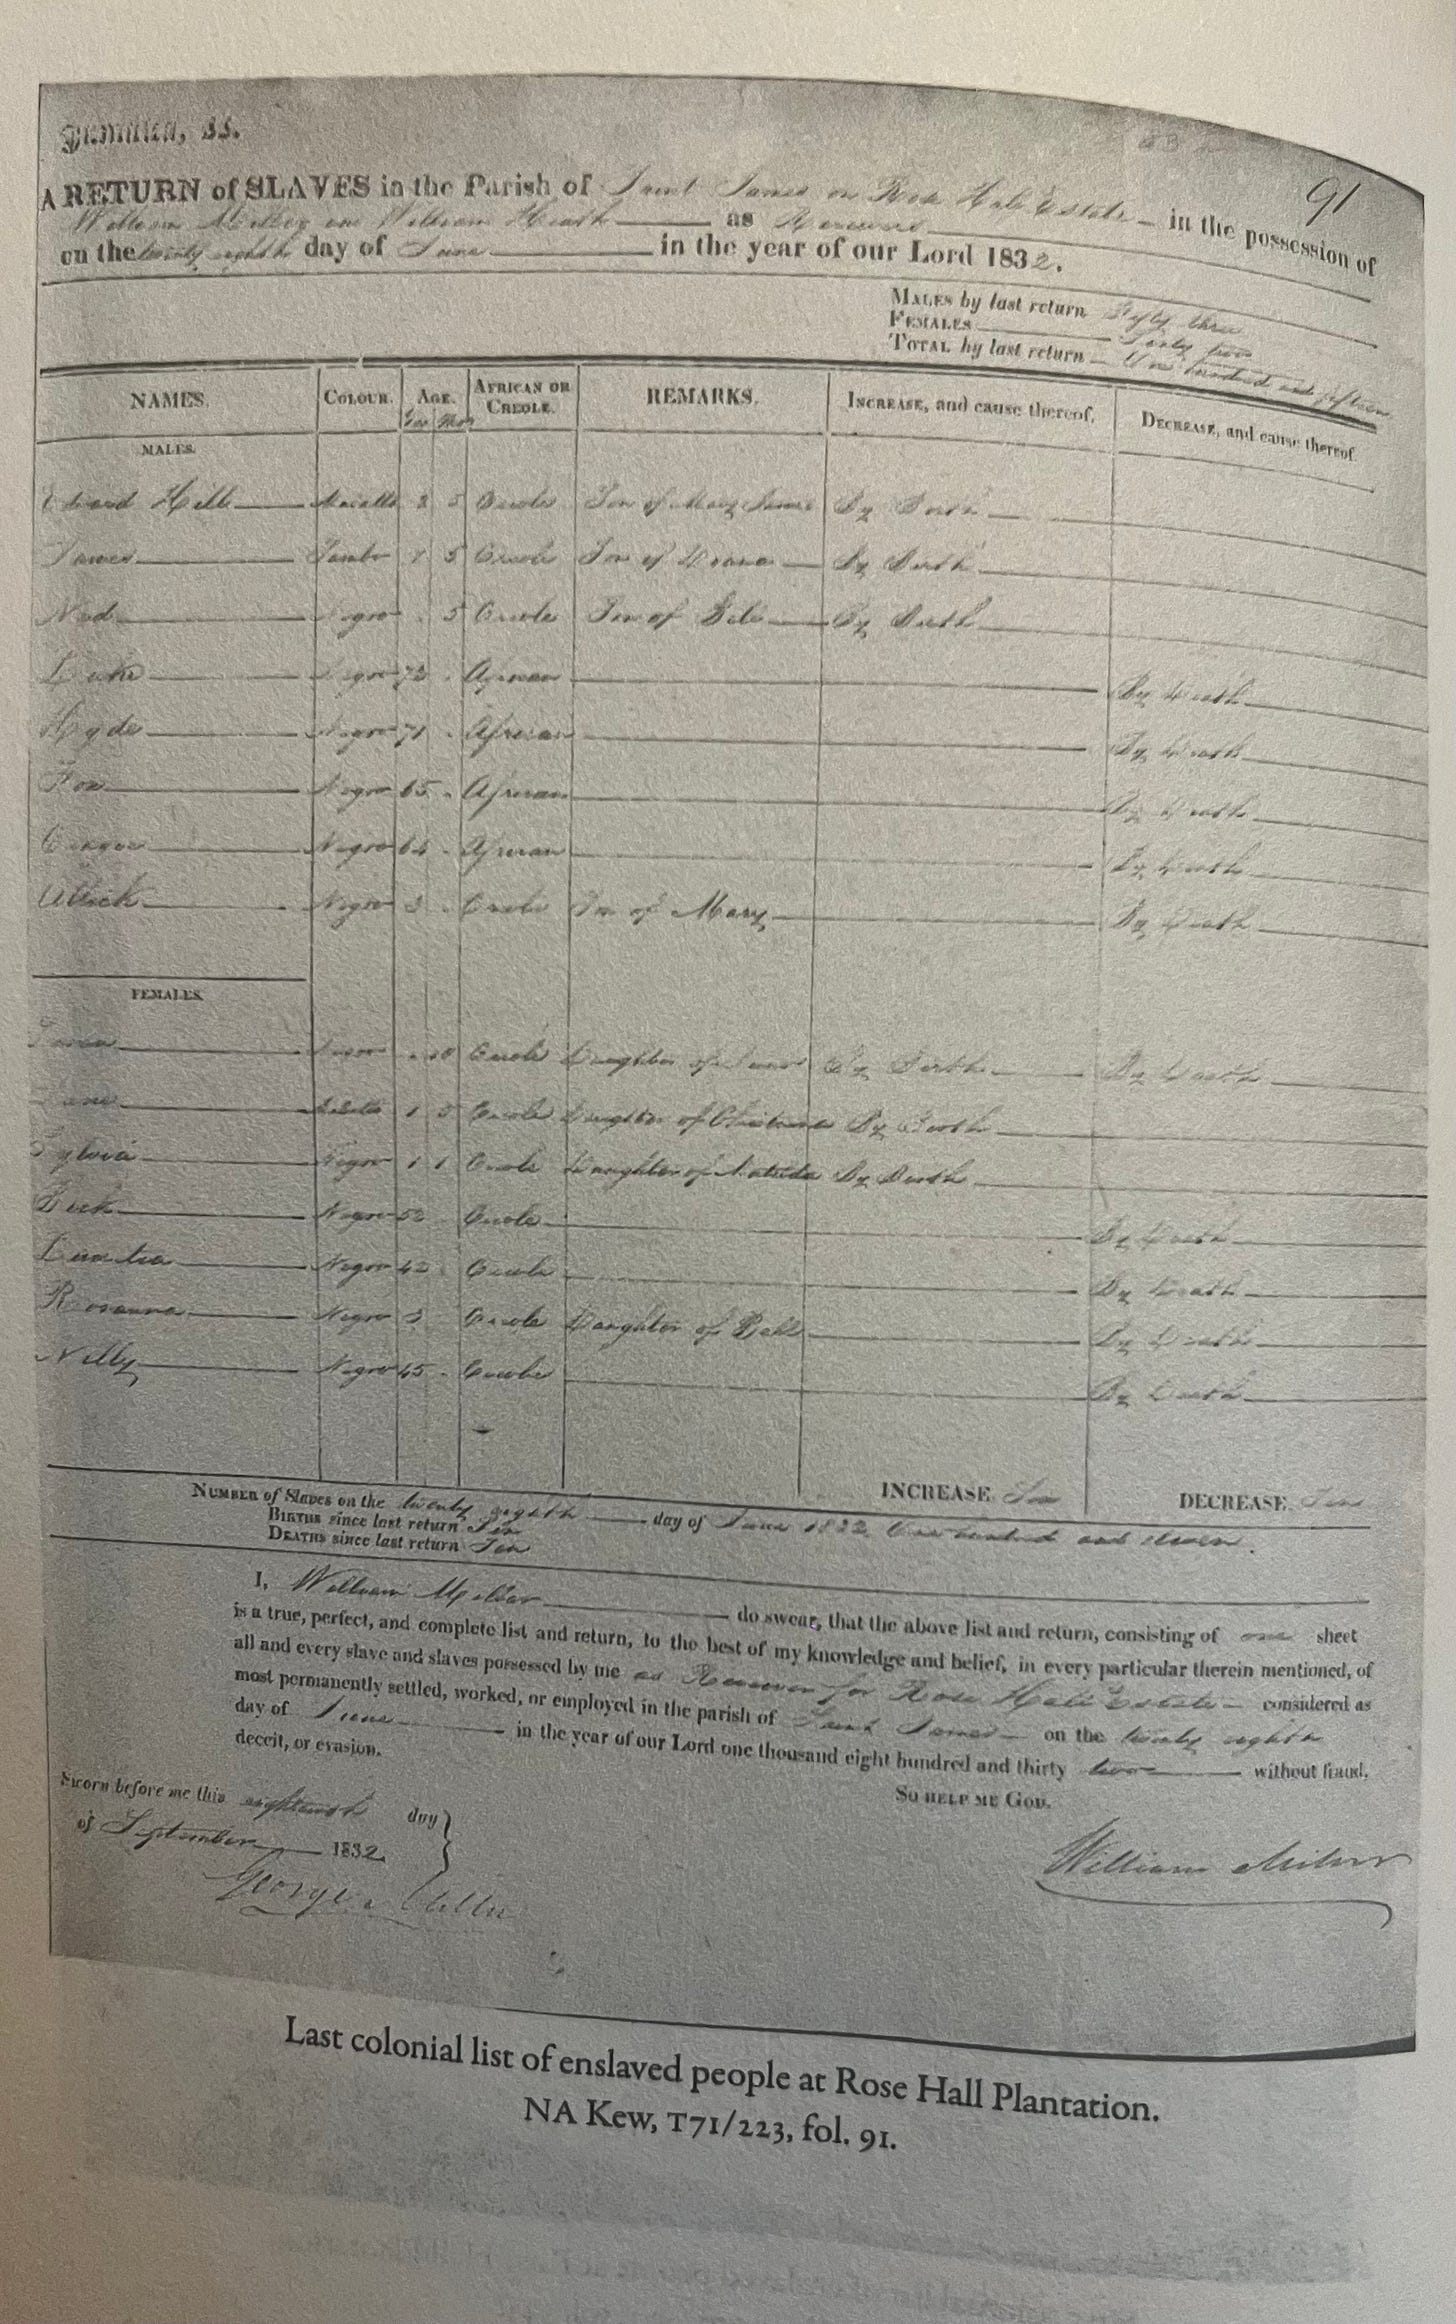 Jamaica, SS.
91
A RETURN of SLAVES in the Parish of Saint James on Rose Hall Estate in the possession of
William Miller on William Heath as Receivers
on the twenty eighth day of June in the year of our Lord 1832.
MALES by last return Fifty three
FEMALES Sixty two
TOTAL by last return One hundred and fifteen
NAMES. COLOUR. AGE. AFRICAN OR CREOLE. REMARKS. INCREASE, and cause thereof. DECREASE, and cause thereof.
MALES.
Edward Hill Mulatto 2 5 Creole Son of Mary James By Birth
James Sambo 1 5 Creole Son of By Birth
Ned Negro 5 Creole Son of By Birth
Negro 72 African By Death
Hyde Negro 71 African By Death
Negro 65 African By Death
Negro 64 African By Death
Ulrick Negro 3 Creole Son of Mary By Death
FEMALES
Negro Creole Daughter of By Birth By Death
1 5 Creole Daughter of By Birth
Sylvia Negro 1 1 Creole Daughter of Matilda By Birth
Negro 52 Creole By Death
Lucretia Negro 42 Creole By Death
Rosanna Negro 3 Creole Daughter of By Death
Nelly Negro 45 Creole By Death
INCREASE Six DECREASE Ten
NUMBER of Slaves on the twenty eighth day of June 1832 One hundred and eleven.
BIRTHS since last return Six
DEATHS since last return Ten
I, William Miller do swear, that the above list and return, consisting of one sheet
is a true, perfect, and complete list and return, to the best of my knowledge and belief, in every particular therein mentioned, of
all and every slave and slaves possessed by me as Receiver for Rose Hall Estate considered as
most permanently settled, worked, or employed in the parish of Saint James on the twenty eighth
day of June in the year of our Lord one thousand eight hundred and thirty two without fraud,
deceit, or evasion.
SO HELP ME GOD.
Sworn before me this eighteenth day
of September 1832
William Miller
George
Last colonial list of enslaved people at Rose Hall Plantation.
NA Kew, T71/223, fol. 91.